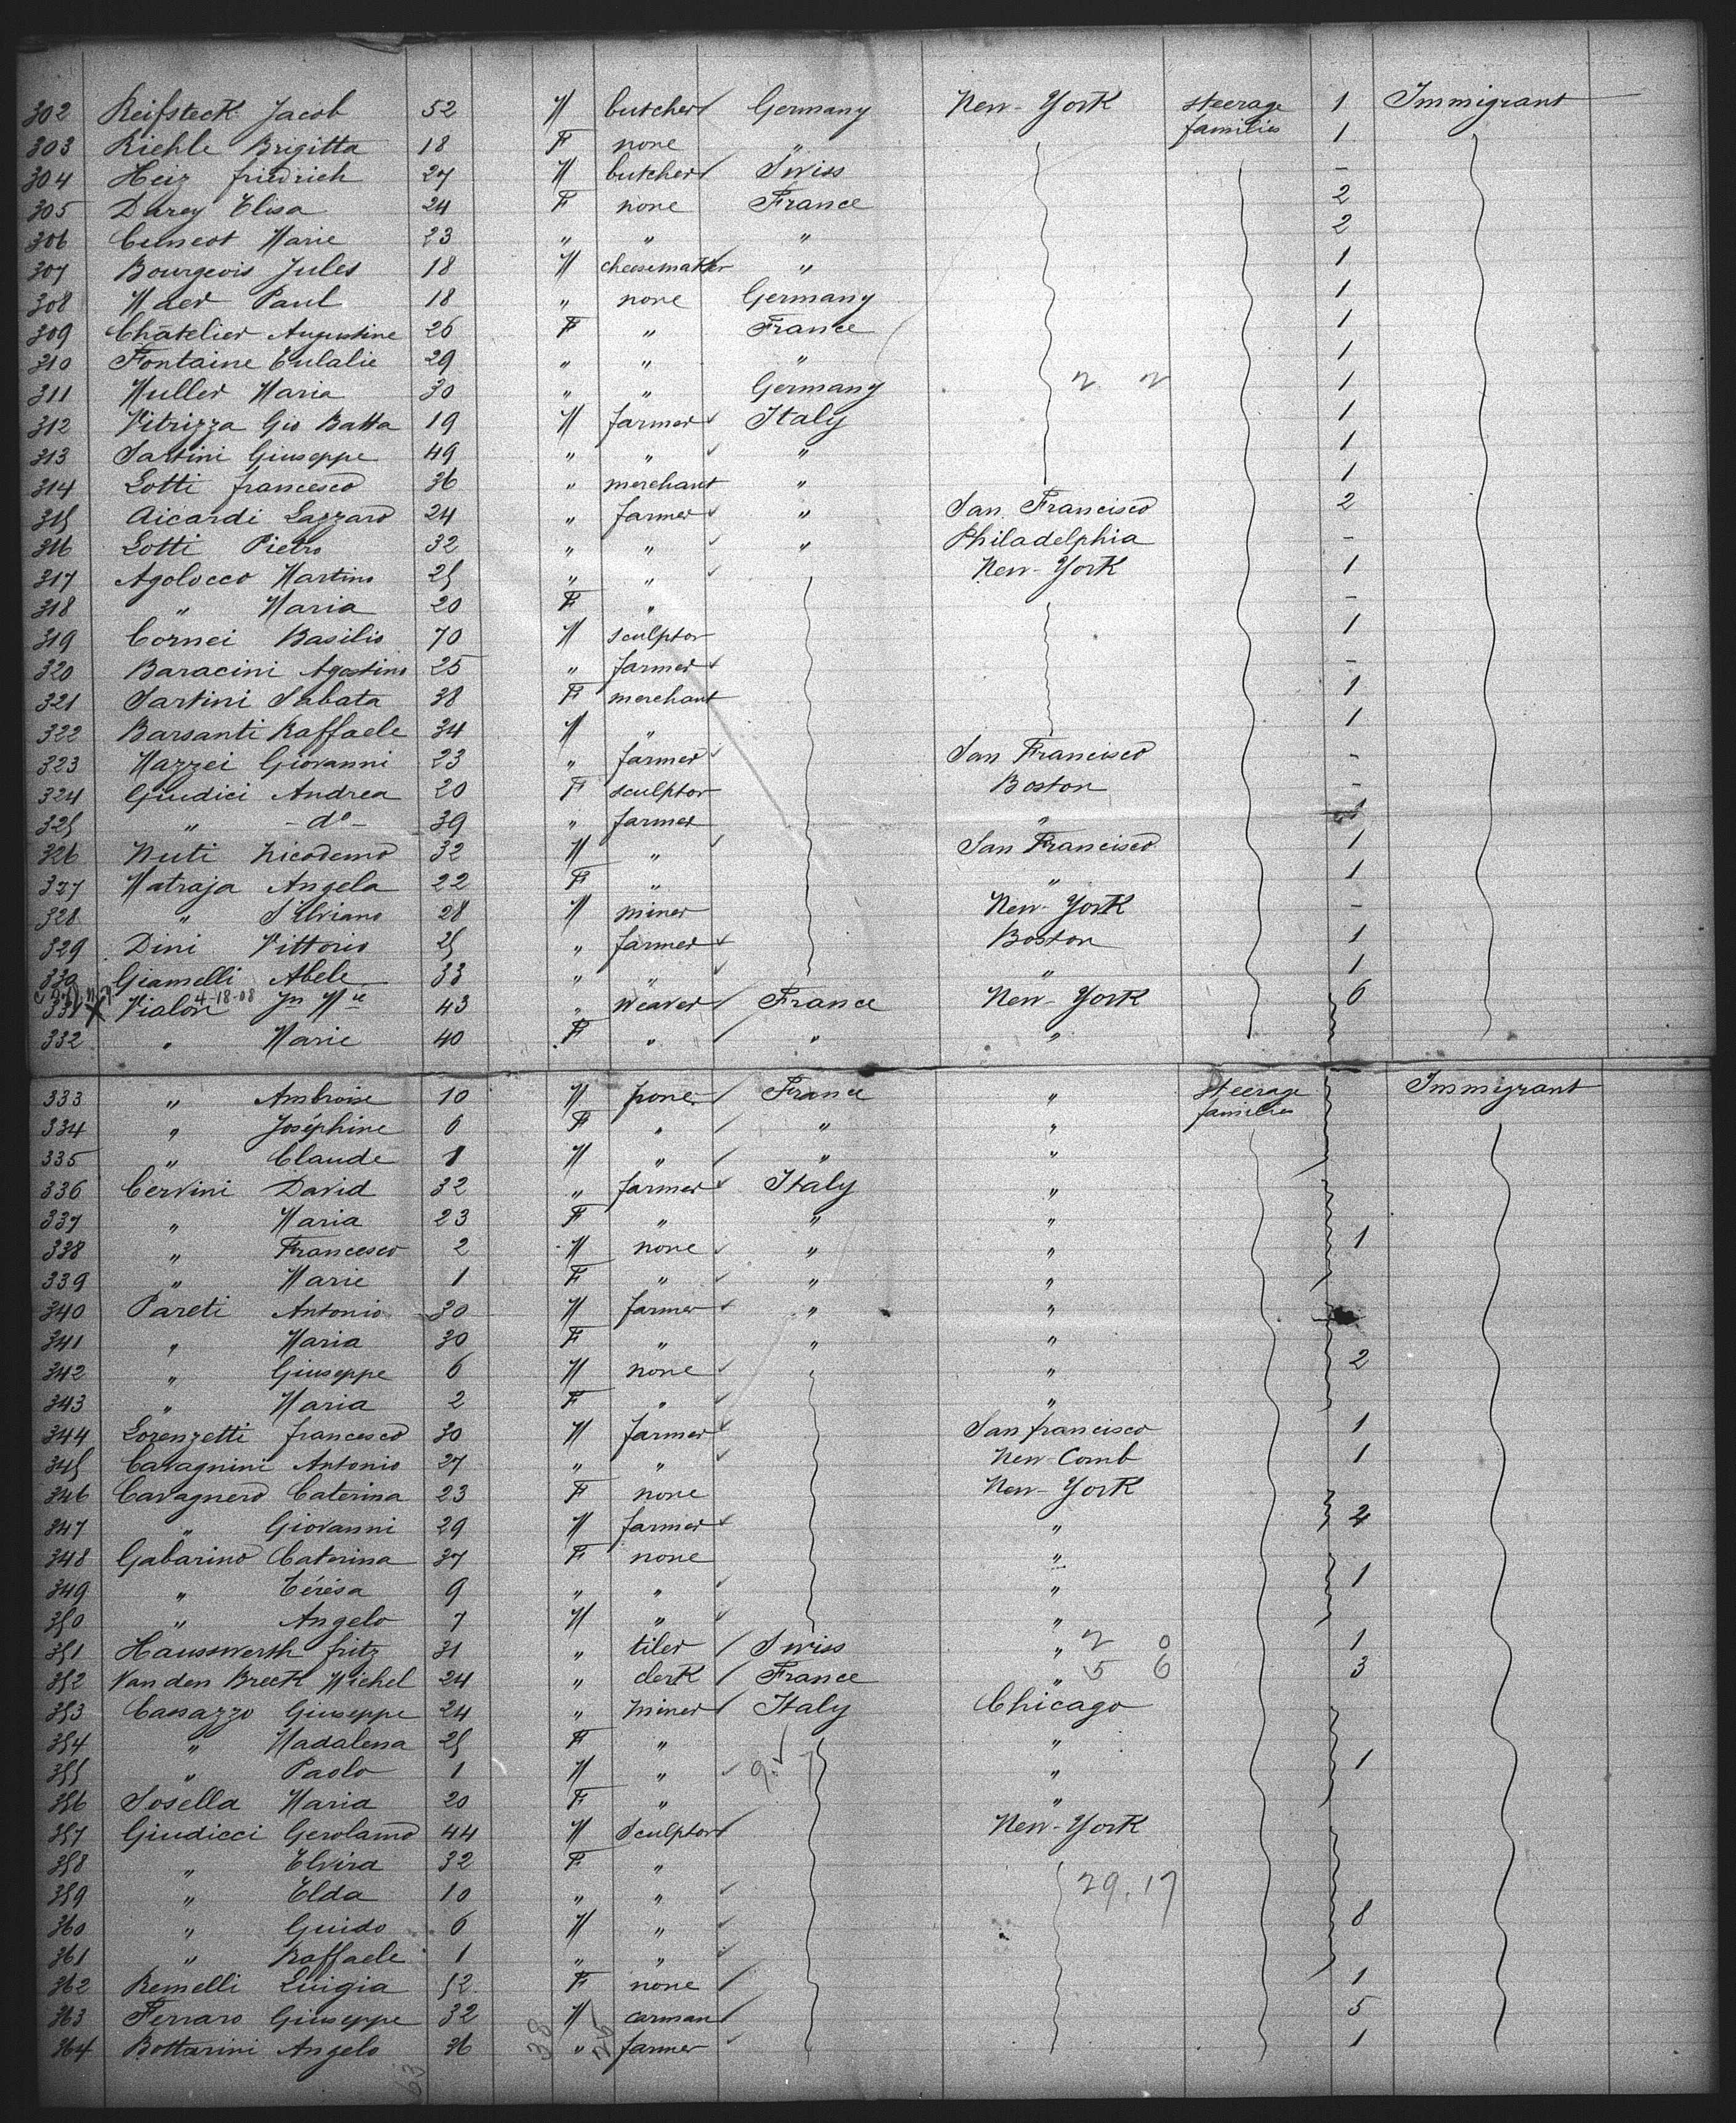 302 Reifsteck Jacob 52 M butcher Germany New-York steerage 1 Immigrant
303 Riehle Brigitta 18 F none " families 1
304 Herz friedrich 27 M butcher Swiss -
305 Darey Elisa 24 F none France 2
306 Cuneot Marie 23 " " " 2
307 Bourgeois Jules 18 M cheesemaker " 1
308 Maer Paul 18 " none Germany 1
309 Châtelier Augustine 26 F " France 1
310 Fontaine Eulalie 29 " " " 1
311 Muller Maria 30 " " Germany 1
312 Vitrizza Gio Batta 19 M farmer Italy 1
313 Sartini Giuseppe 49 " " " 1
314 Lotti francesco 36 " merchant " 1
315 Aicardi Lazzaro 24 " farmer " San Francisco 2
316 Lotti Pietro 32 " " " Philadelphia -
317 Agolocco Martino 25 " " New-York 1
318 " Maria 20 F " -
319 Cornei Basilio 70 M sculptor 1
320 Baracini Agostino 25 " farmer -
321 Sartini Sabata 38 F merchant 1
322 Barsanti Raffaele 34 M " 1
323 Mazzei Giovanni 23 " farmer San Francisco -
324 Giudici Andrea 20 F sculptor Boston -
325 " -do- 39 " farmer "
326 Nuti Nicodemo 32 M " San Francisco 1
327 Matraja Angela 22 F " " 1
328 " Silviano 28 M miner New-York -
329 Dini Vittorio 25 " farmer Boston 1
330 Giamelli Abele 33 " " " 1
4-18-08
331 X Vialon Jn Mie 43 " weaver France New-York 6
332 " Marie 40 F " " "
333 " Ambroise 10 M none France " steerage Immigrant
334 " Joséphine 6 F " " " families
335 " Claude 1 M " " "
336 Cervini David 32 " farmer Italy "
337 " Maria 23 F " " "
338 " Francesco 2 M none " " 1
339 " Marie 1 F " " "
340 Pareti Antonio 30 M farmer " "
341 " Maria 30 F " " "
342 " Giuseppe 6 M none " 2
343 " Maria 2 F " "
344 Lorenzetti francesco 30 M farmer San francisco 1
345 Cavagnini Antonio 27 " " New-Comb 1
346 Cavagnero Caterina 23 F none New-York
347 " Giovanni 29 M farmer " 2
348 Gabarino Caterina 37 F none "
349 " Térésa 9 " " " 1
350 " Angelo 7 M " "
351 Hauswerth fritz 31 " tiler Swiss " 2 0 1
352 Van den Breck Michel 24 " clerk France " 5 6 3
353 Cassazzo Giuseppe 24 " miner Italy Chicago
354 " Madalena 25 F " "
355 " Paolo 1 M " " 1
356 Sosella Maria 20 F " "
357 Giudicci Gerolamo 44 M sculptor New-York
358 " Elvira 32 F "
359 " Elda 10 " " 29.17
360 " Guido 6 M " 8
361 " Raffaele 1 " "
362 Remelli Luigia 52 F none 1
363 Ferraro Giuseppe 32 M carman 5
364 Bottarini Angelo 36 " farmer 1
63 38 25